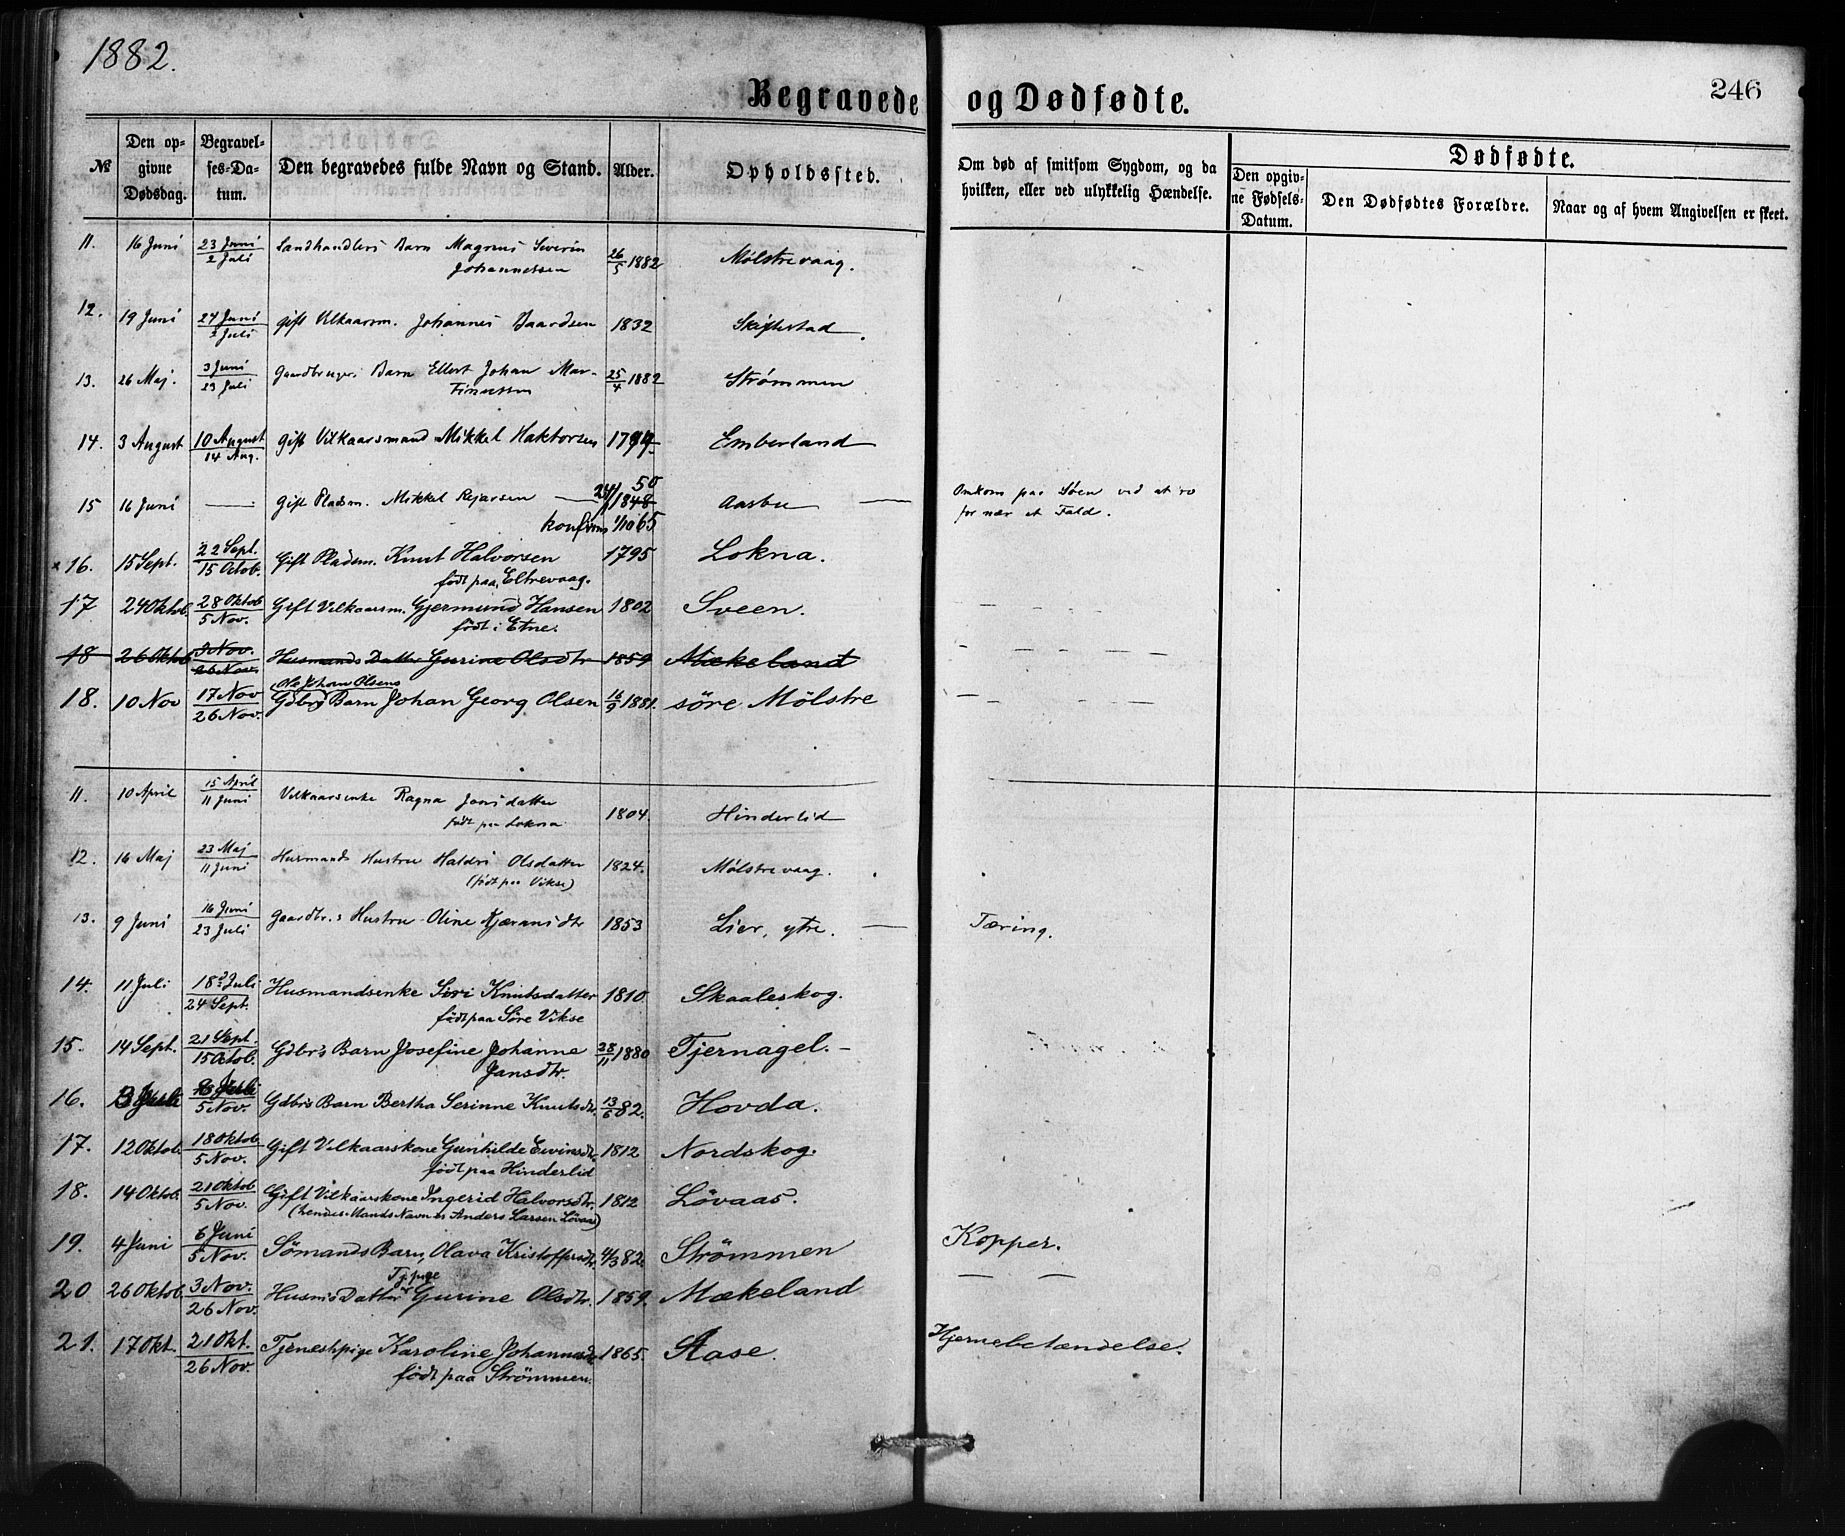 1882.
Begravede og Dødfødte.
246
№ Den opgivne Dødsdag. Begravelses-Datum. Den begravedes fulde Navn og Stand. Alder. Opholdssted. Om død af smitsom Sygdom, og da hvilken, eller ved ulykkelig Hændelse. Dødfødte.
Den opgivne Fødsels-Datum. Den Dødfødtes Forældre. Naar og af hvem Angivelsen er skeet.
11. 16 Juni 23 Juni / 2 Juli Sandhandlers Barn Magnus Severin 26/5 1882 Mølstrevaag.
Johannessen
12. 19 Juni 24 Juni / 2 Juli gift Vilkaarsm. Johannes Baardsen 1832 Skiftestad.
13. 26 Maj. 3 Juni / 23 Juli Gaardbruger Barn Ellert Johan Mar- 25/4 1882 Strømmen
tinussen
14. 3 August 10 August / 14 Aug. gift Vilkaarsmand Mikkel Haktorsen Emberland
50
15 16 Juni — Gift Pladsm. Mikkel Rejarsen — 24/ 1848 Aasbu — Omkom paa Søen ved at ro
konfirm 1/10 65 for nær et Fald.
× 16. 15 Sept. 22 Sept. / 15 Octob. Gift Pladsm. Knut Halvorsen 1795 Lokna.
født paa Eltrevaag.
17 24 Oktob. 28 Oktob / 5 Nov. Gift Vilkaarsm. Gjermund Hansen 1802 Sveen. — — — — —
født i Etne.
18 26 Oktob 3 Nov. / 26 Nov. Husmands Datter Gurine Olsdtr 1859 Mækeland
Ole Johan Olsens
18. 10 Nov 17 Nov / 26 Nov. Gdbrs Barn Johan Georg Olsen 16/9 1881. søre Mølstre — — — — —
11. 10 April 15 April / 11 Juni Vilkaarsenke Ragna Jansdatter 1804. Hinderlid
født paa Lokna
12. 16 Maj 23 Maj / 11 Juni Husmands Hustru Haldri Olsdatter 1824. Mølstrevaag.
(født paa Vikse)
13. 9 Juni 16 Juni / 23 Juli Gaardbr.s Hustru Oline Kjæransdtr 1853 Lier, ytre. — Tæring.
14. 11 Juli 18 Juli / 24 Sept. Husmandsenke Siri Knutsdatter 1810. Skaaleskog.
født paa Søre Vikse
15. 14 Sept. 21 Sept. / 15 Octob. Gdbrs Barn Josefine Johanne 28/11 1880 Tjernagel. —
Jansdtr.
16. 3 Juli Juli / 5 Nov. Gdbrs Barn Bertha Serinne Knutsdtr. 13/6 82. Hovda.
17. 12 Oktob. 18 Oktob. / 5 Nov. Gift Vilkaarskone Gunhilde Eivinsdtr. 1812 Nordskog.
født paa Hinderlid
18. 14 Oktob. 21 Oktob / 5 Nov. Gift Vilkaarskone Ingerid Halvorsdtr. 1812 Lövaas.
(hendes Mands Navn er Anders Larsen Lövaas)
19. 4 Juni 6 Juni / 5 Nov. Sömands Barn, Olava Kristoffersdtr. 4/3 82. Strömmen Kopper.
Tj. pige
20 26 Oktob. 3 Nov. / 26 Nov. Husms Datter Gurine Olsdtr. 1859. Mækeland — —
21. 17 Okt. 21 Okt. / 26 Nov. Tjenestepige Karoline Johannesdtr 1865. Aase. Hjernebetændelse.
født paa Strömmen.